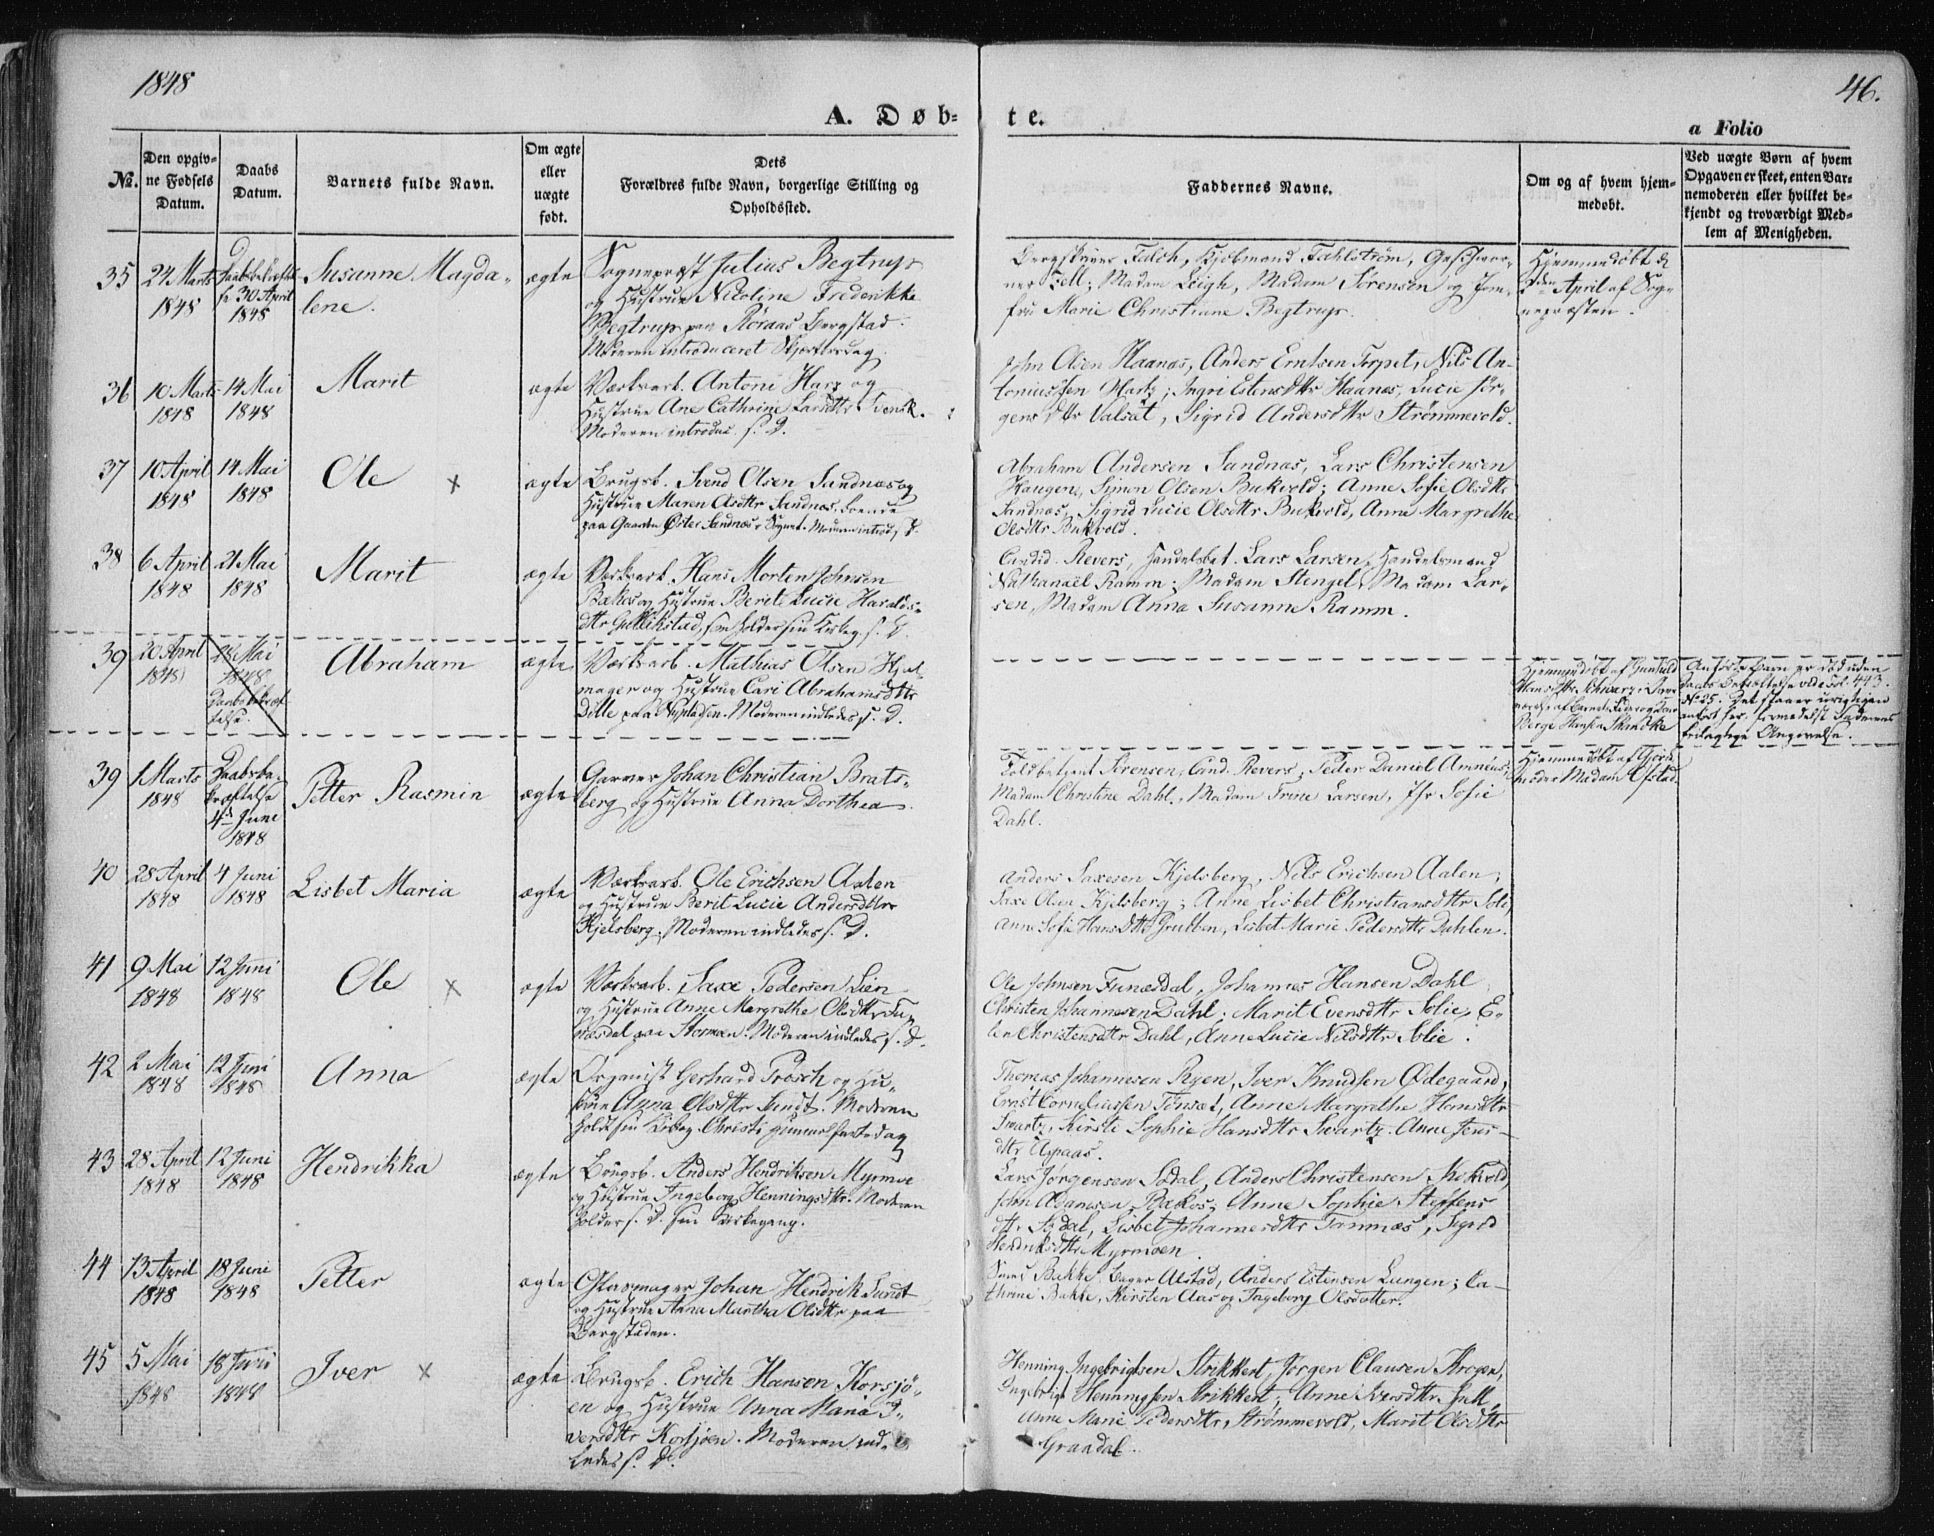 1848
46.
A. Døb-
te.
a Folio
No.
Den opgiv-
ne Fødsels
Datum.
Daabs
Datum.
Barnets fulde Navn.
Om ægte
eller
uægte
født.
Dets
Forældres fulde Navn, borgerlige Stilling og
Opholdssted.
Faddernes Navne.
Om og af hvem hjem-
medøbt.
Ved uægte Børn af hvem
Opgaven er skeet, enten Bar-
nemoderen eller hvilket be-
kjendt og troværdigt Med-
lem af Menigheden.
35
24 Marts
1848
30 April
1848
Susanne Magda-
lene.
ægte
Sognepræst Julius Begtrup
og Hustrue Nicoline Frederikke
Begtrup paa Røraas Bergstad.
Moderen introduceret Skjærthorsdag.
Falch, Kjøbmand Fahlstrøm,
Madam Leigh, Madam Sørensen og Jom-
fru Marie Christiane Begtrup.
Hjemmedøbt d.
April af Sog-
nepræsten.
36
10 Marts
1848
14 Mai
1848
Marit
ægte
Værksarb. Antoni Harz og
Hustrue Ane Cathrine
Moderen introduc. s. D.
John Olsen Haanæs, Anders Erntsen Torpet, Nils An-
toniussen Hartz; Ingri Estensdttr Haanæs, Lucie Jør-
gensdttr Valsæt, Sigrid Andersdttr Strømmevold.
37
10 April
1848
14 Mai
1848
Ole x
ægte
Brugsb. Svend Olsen Sandnæs og
Hustrue Maren Olsdttr Sandnæs, boende
paa Gaarden Øster Sandnæs
Abraham Andersen Sandnæs, Lars Christensen
Haugen, Simon Olsen Bukvold; Anne Sofie Olsdttr
Sandnæs, Sigrid Lucie Olsdttr Bukvold, Anne Margrethe
Olsdttr Bukvold.
38
6 April
1848
21 Mai
1848
Marit
ægte
Værksarb. Hans Morten Johnsen
Bækos og Hustrue Berit Lucie Haralds-
dttr Gullikstad, som holder sin Kirkeg. s. D.
Candid. Revers, Handelsbet. Lars Larsen, Handelsmand
Nathanaël Ramm; Madam Stengel, Madam Lar-
sen, Madam Anna Susanne Ramm.
39
20 April
1848
28 Mai
1848
Daabsbekræf-
telse.
Abraham
ægte
Værksarb. Mathias Olsen Hjul-
mager og Hustrue Cari Abrahamsdttr
Dille paa Nypladsen. Moderen indledes s. D.
Hjemmedøbt af Gunhild
Hansdttr Schwarz
Anførte Barn er død uden
Daabsbekræftelse vide Fol. 443.
No 25. Det staaer urigtigen
anført her formedelst Faderens
Angivelse.
39
1 Marts
1848
Daabsbe-
kræftelse
4de Juni
1848
Petter Rasmin
ægte
Garver Johan Christian Brats-
berg og Hustrue Anna Dorthea.
Toldbetjent Sørensen, Cand. Revers, Peder Daniel
Madam Christine Dahl, Madam Trine Larsen, Jfr Sofie
Dahl.
Hjemmedøbt af Gjord-
moder Madam Ofstad.
40
28 April
1848
4 Juni
1848
Lisbet Maria
ægte
Værksarb. Ole Erichsen Aalen
og Hustrue Berit Lucie Andersdttr
Kjelsberg. Moderen indledes s. D.
Anders Saxesen Kjelsberg, Nils Erichsen Aalen,
Saxe Olsen Kjelsberg; Anne Lisbet Christiansdttr Soli,
Anne Sofie Hansdttr Grubben, Lisbet Marie Pedersdttr Dahlen.
41
9 Mai
1848
12 Juni
1848
Ole x
ægte
Værksarb. Saxe Pedersen Lien
og Hustrue Anne Margrethe Olsdttr Fu-
næsdal paa Stormoen. Moderen indledes s. D.
Ole Johnsen Funæsdal, Johannes Hansen Dahl,
Christen Johannesen Dahl; Marit Evensdttr Solie, E-
len Christensdttr Dahl, Anne Lucie Nilsdttr Solie.
42
2 Mai
1848
12 Juni
1848
Anna
ægte
Organist Gerhard Trøsch og Hu-
strue Anna Olsdttr Sundt. Moderen
holdt sin Kirkeg. Christi himmelfartsdag
Thomas Johannesen Ryen, Iver Knudsen Ødegaard,
Ernst Corneliussen Tønsæt, Anne Margrethe Hansdttr
Swartz, Kirsti Sophie Hansdttr Swartz. Anne Jens-
dttr Aspaas.
43
28 April
1848
12 Juni
1848
Hendrikka
ægte
Brugsb. Anders Hendriksen Myrmoe
og Hustrue Ingeborg Henningsdttr. Moderen
holder s. D. sin Kirkegang.
Lars Jørgensen Sødal, Anders Christensen
John Adamsen Bækos; Anne Sophie Steffens
dttr Sødal, Lisbet Johannesdttr Tamnæs, Sigrid
Hendriksdttr Myrmoen.
44
13 April
1848
18 Juni
1848
Petter
ægte
Glasmager Johan Hendrik Sundt
og Hustrue Anna Martha Olsdttr paa
Bergstaden.
Svend Bakke, Bager Alstad, Anders Estensen Lungen; Ca-
thrine Bakke, Kirsten Aas og Ingeborg Olsdatter.
45
5 Mai
1848
18 Juni
1848
Iver x
ægte
Brugsb. Erich Hansen Korsjø-
en og Hustrue Anna Maria I-
versdttr Korsjøen. Moderen ind-
ledes s. D.
Henning Ingebrigtsen Strikkert, Jørgen Clausen Krogen,
Ingebrigt Henningsen Strikkert; Anne Iversdttr
Anne Marie Pedersdttr Strømmevold, Marit Olsdttr
Graadal.